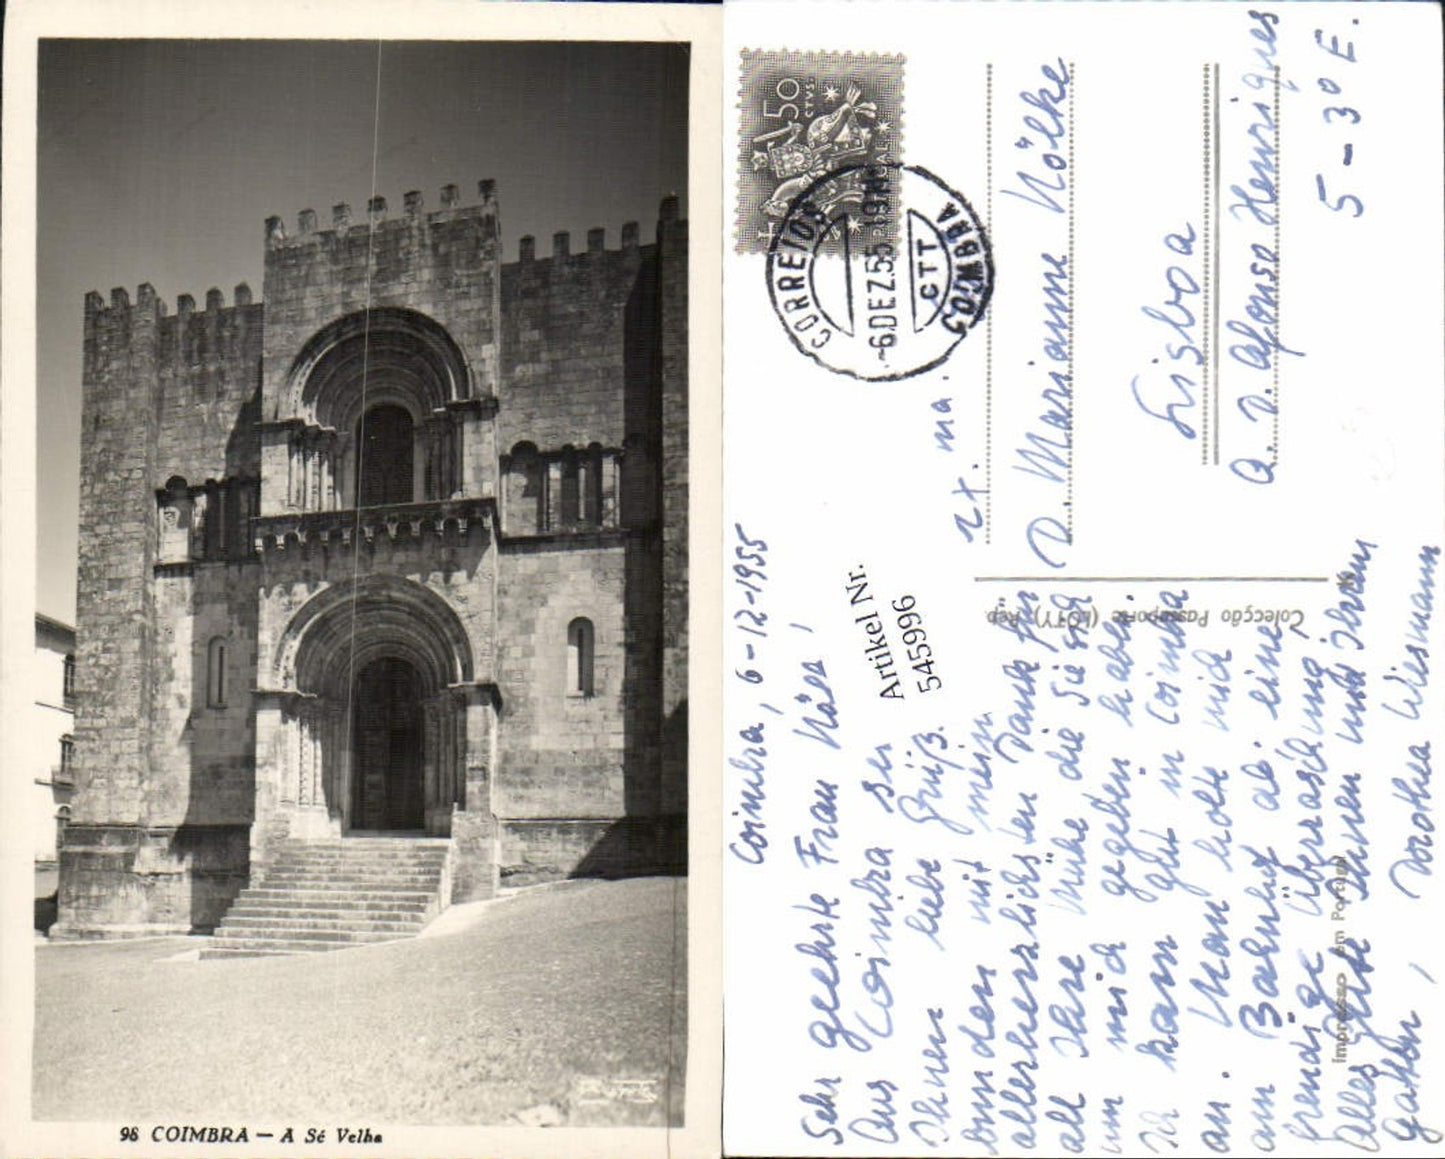 98 COIMBRA — A Sé Velha
50
CTVS.
PORTUGAL
CORREIOS
-6.DEZ.55
CTT
COIMBRA
Artikel Nr.
545996
Colecção Passaporte (LOTY) Rep.
Impresso em Portugal
Coimbra, 6-12-1955
Sehr geehrte Frau Nölke,
Aus Coimbra sei
Ihnen liebe Grüße
bunden mit mein
allerherzlichsten Dank für
all Ihre Mühe die Sie sich
um mich gegeben haben.
Ich kam gut in Coimbra
an. Man holte mich
am Bahnhof ab, eine
freudige Überraschung,
Alles Gute Ihnen und Ihrem
Gatten, Dorothea Wiesmann
D. Marianne Nölke
Lisboa
R. D. Afonso Henriques
5-3º E.